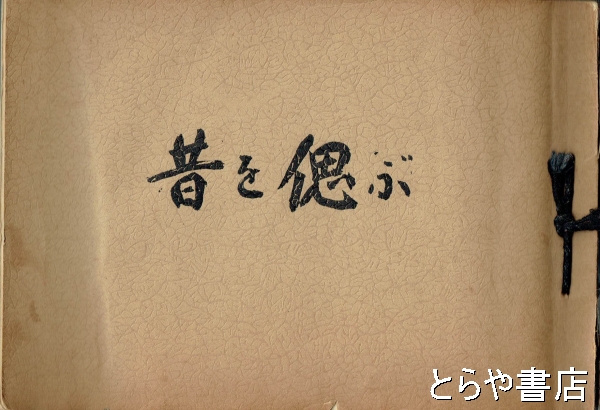 昔を偲ぶ
とらや書店